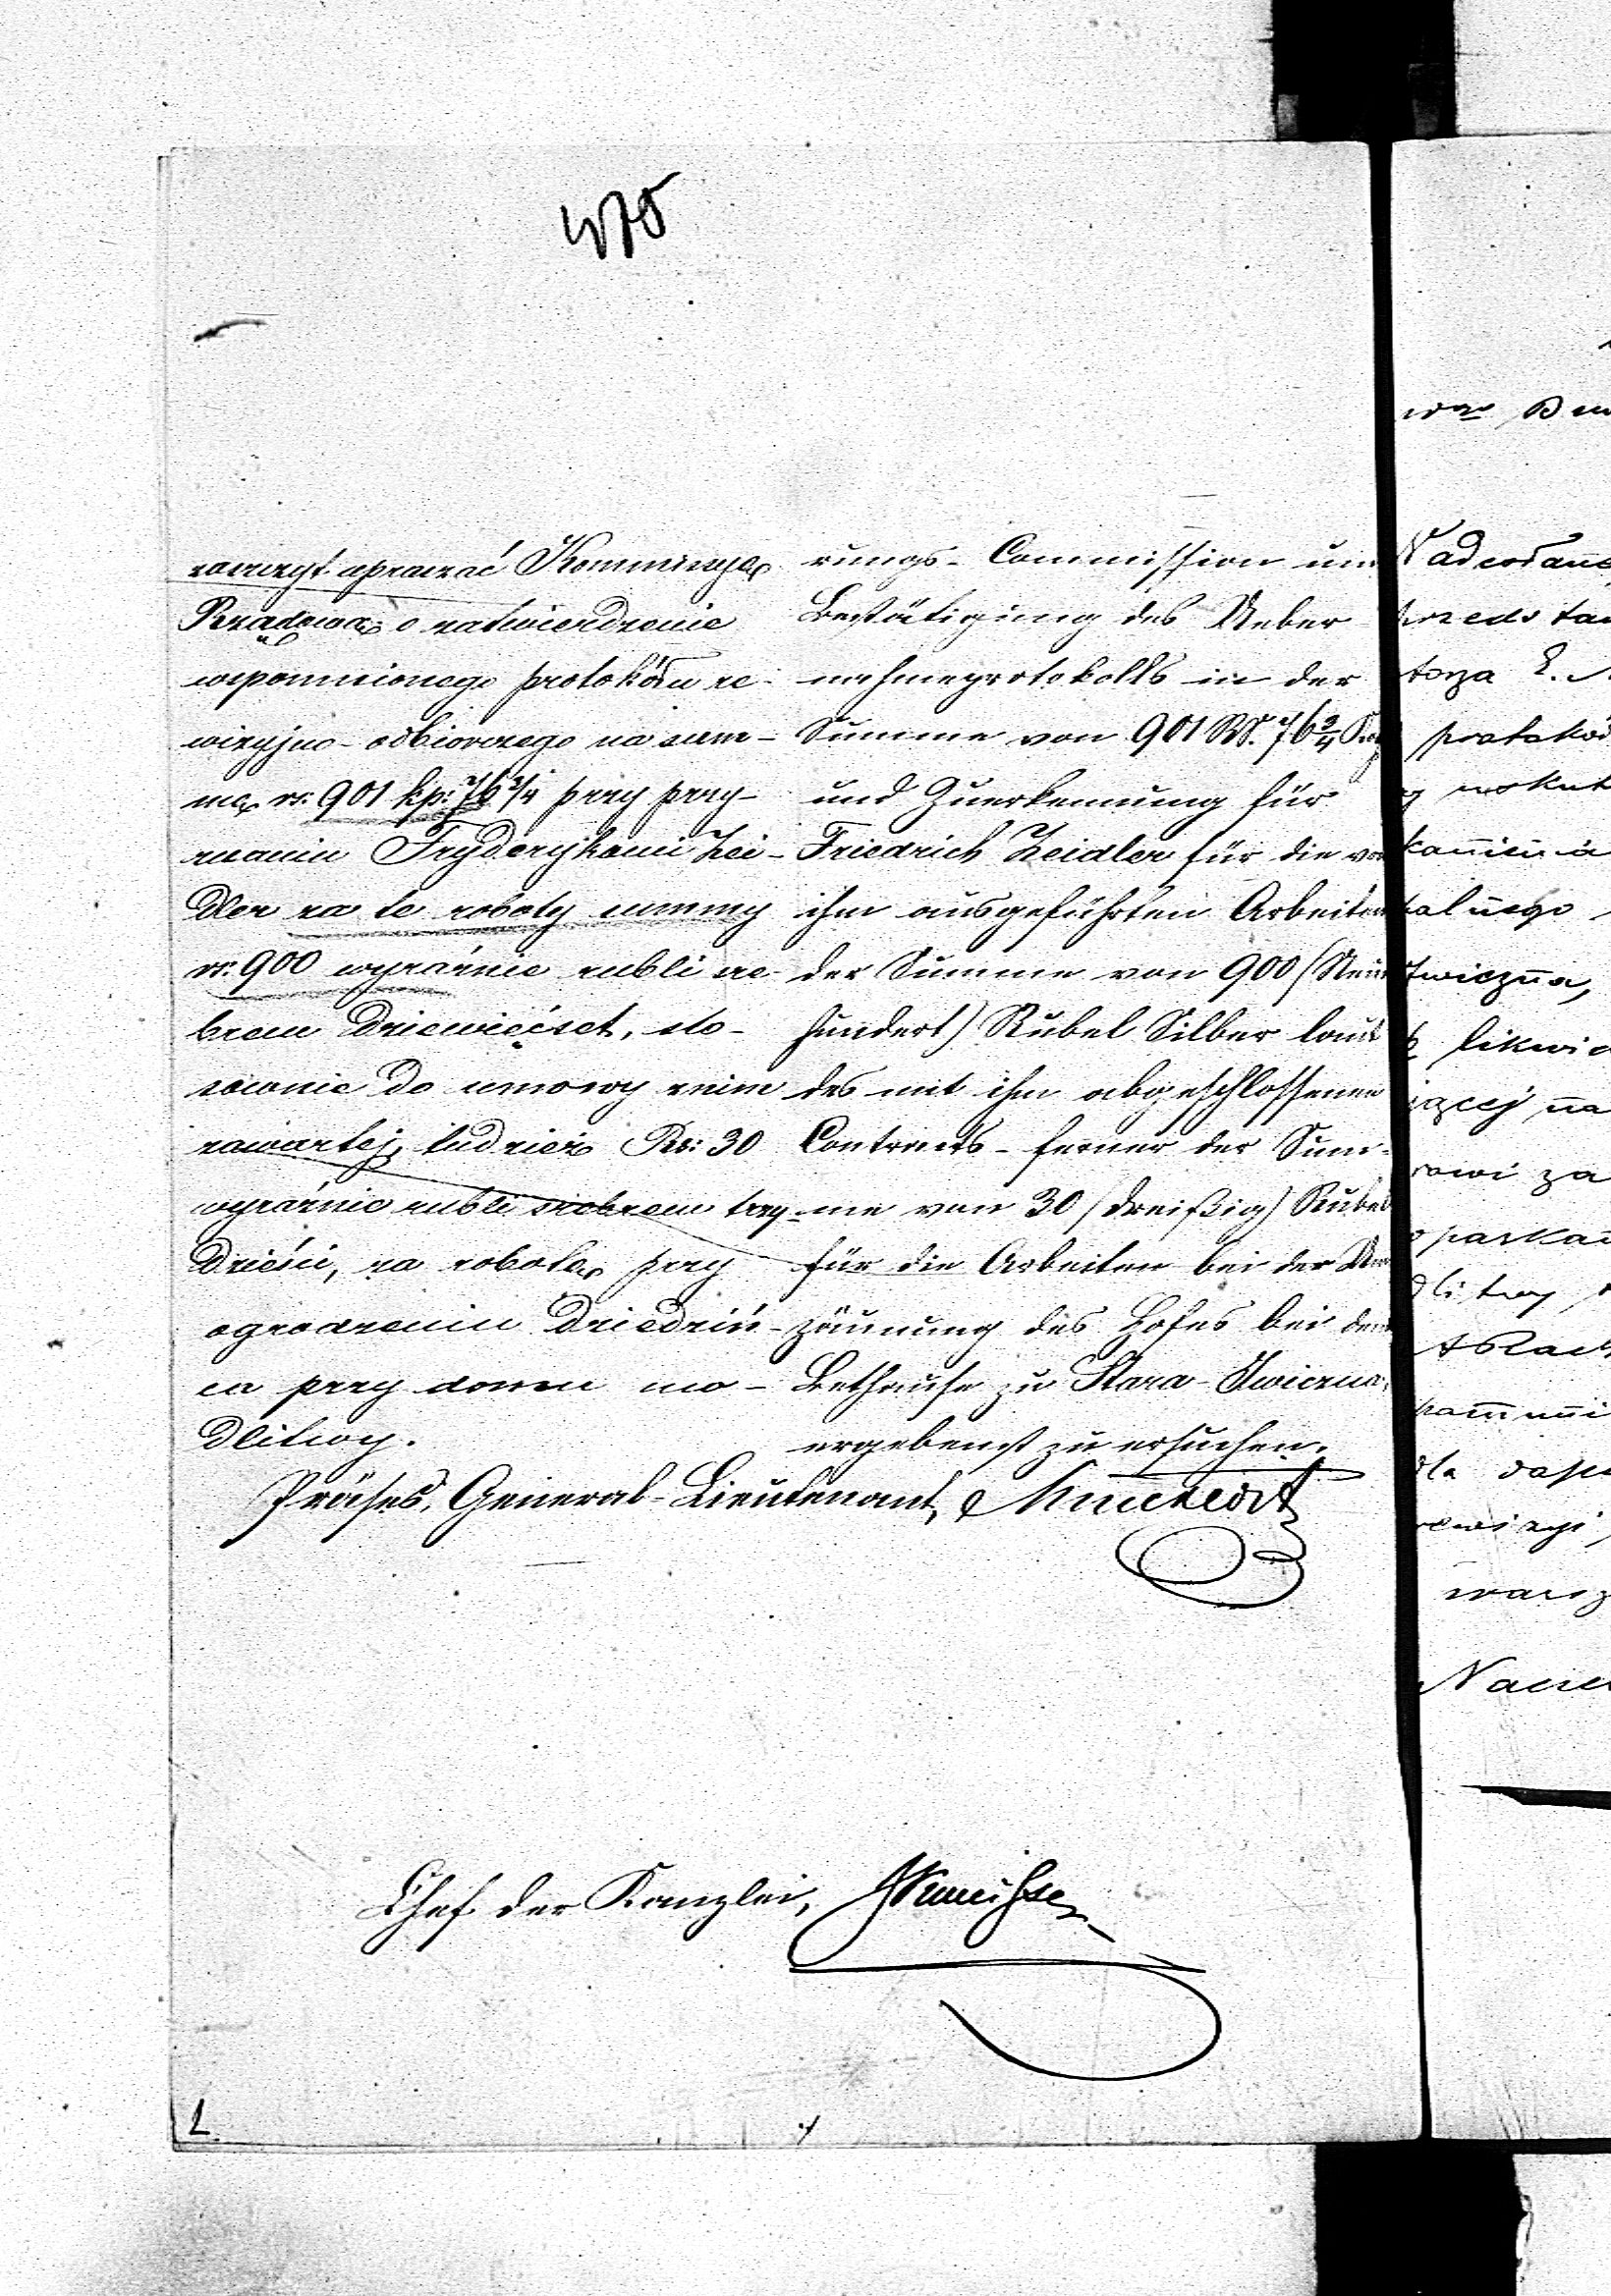 475
zaszczyt upraszać Kommissyą
Rządową o zatwierdzenie
wspomnionego protokółu re-
wizyjno-odbiorczego na sum-
mę rs: 901 kp: 76 3/4 przy przy-
znaniu Fryderykowi Zei-
dler za te roboty summy
rs: 900 wyraźnie rubli sre-
brem dziewięćset, sto-
sownie do umowy z nim
zawartej, tudzież Rs: 30
wyraźnie rubli srebrem trzy-
dzieści, za robotę przy
ogrodzeniu dziedziń-
ca przy domu mo-
dlitwy.
rungs-Commission um
Bestätigung des Ueber-
nahmeprotokolls in der
Summe von 901 RS. 76 3/4 Kop
und Zuerkennung für
Friedrich Zeidler für die von
ihm ausgeführten Arbeiten
der Summe von 900 (Neun
hundert) Rubel Silber laut
des mit ihm abgeschlossenen
Contracts - ferner der Sum-
me von 30 (dreißig) Rubel
für die Arbeiten bei der Um
zäunung des Hofes bei dem
Bethause zu Stara-Iwiczna
ergebenst zu ersuchen.
Präses, General-Lieutenant,
Chef der Kanzlei,
L
Nadesłane
przedsta
torza E.
protokół
kamienia
Iwiczna,
likwid
jącej na
rowi za
parkan
dlitwy
rewizyi,
warsz
Nacze